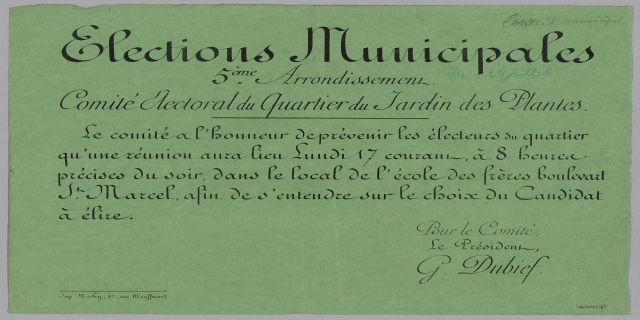 Conseil municipal
Elections Municipales
5ème Arrondissement.
Comité Électoral du Quartier du Jardin des Plantes.
Le comité a l'honneur de prévenir les électeurs du quartier
qu'une réunion aura lieu Lundi 17 courant, à 8 heures
précises du soir, dans le local de l'école des frères boulevart
St. Marcel, afin de s'entendre sur le choix du Candidat
à élire.
Pour le Comité.
Le Président,
G. Dubief.
Imp. rue Mouffetard